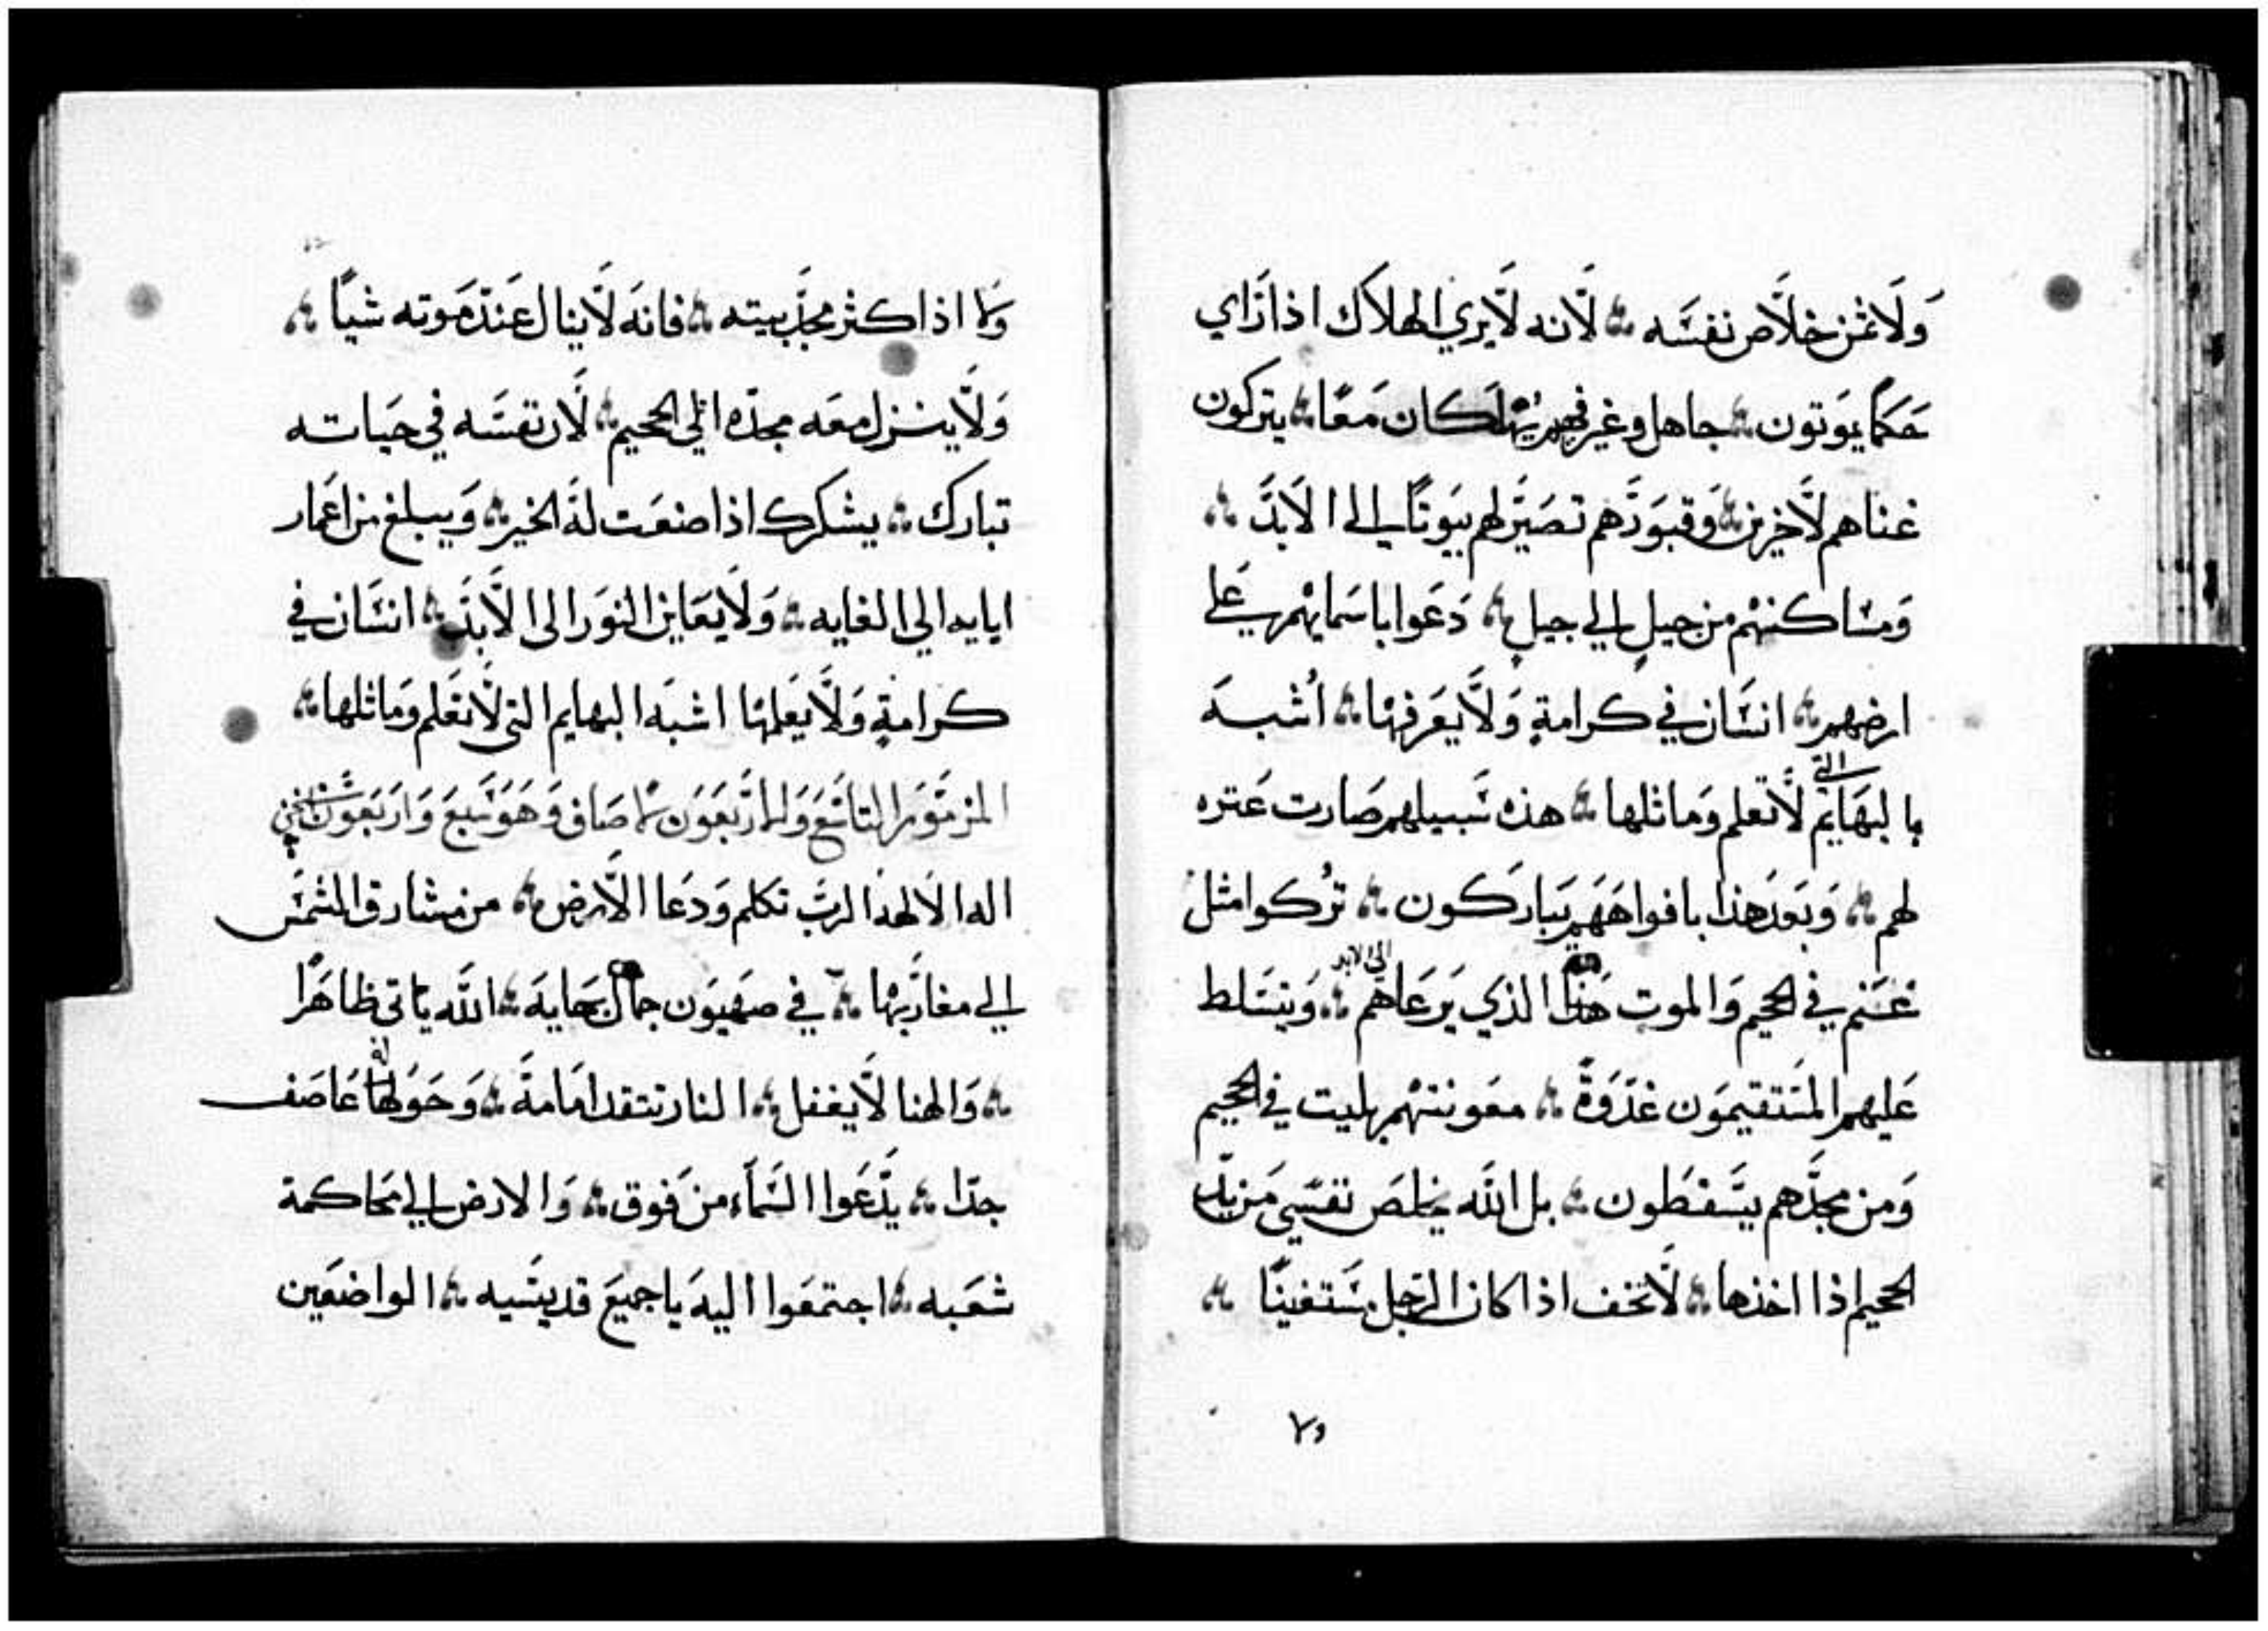 وَلَا ثمن خلاص نفسَه ؞ لّانه لَايري الهلاك اذا رَاي
حَكمًا يمَوتون ؞ جاهل وغير فهم يُهلَكان مَعًا ؞ يتركون
غناهم لّاخرين ؞ وَقبوَرَهم تصَيَّر لهم بيَوتًا الي الاَبدَ ؞
وَمسَاكنهْم من جيلٍ الي جيلٍ ؞ دَعَوا باسَمايهْم علي
ارضهم ؞ انسَان في كرامةٍ وَلَّايعَرفهْا ؞ اُشبَه
بالبهَايَم التي لَّاتعلم وَماثلها ؞ هذه سَبيلهم صَارت عَتره
لهم ؞ وَبَعَد هَذا بافواهَهَم يَباركون ؞ ترُكوا مثل
غَنَم في الجحيم وَالموت هذا الذي يَرعَاهم الي الابد ؞ وَيتسَلط
عَليهم المسَتقيمَون غدَوَةً ؞ مَعَونتهْم بليت في الجحيم
وَمن مجدَّهم يسَقطَون ؞ بل اللَه يخلصَ نفسَي مَن يدَ
الجحيم اذا اخذها ؞ لَّاتخف اذا كان الرَجل مسَتغنيًا ؞
وَلا اذا كثر مجدَ بيته ؞ فانَه لَّاينال عَندَ مَوته شيًا ؞
وَلَّاينزل معَه مجدَه الي الجحيم ؞ لَّان نفسَه في حيَاته
تبارك ؞ يشكرك اذا صنعَت لهَ الخير ؞ وَيبلغ من اعَمار
ابايه الي الغايه ؞ وَلَايعَاين النوَر الي الَّابدَ ؞ انسَان في
كرامةٍ وَلَّايعَلمهْا اشبَه البهايم التي لَّاتعَلم وَماثلها ؞
المزمَوَر التاسَع وَالارَبَعَوَن لاصَاف وَهَوَ سَبعَ وَارَبَعَوَن
اله الالهه الربَ تكلم وَدَعَا الَّارض ؞ من مشارق الشمسَ
الي مغاربَهْا ؞ في صهيَون جمال بَهايهَ ؞ اللَه ياتي ظاهَرًا
؞ وَالهنا لَّايغفل ؞ النار تتقد امَامهَ ؞ وَحَوَله عَاصَف
جدًا ؞ يَّدَعَوا السَمآء من فَوق ؞ وَالارض الي محَاكمة
شعَبه ؞ اجتمعَوا اليهَ يَاجميعَ قديسَيه ؞ الواضعَين